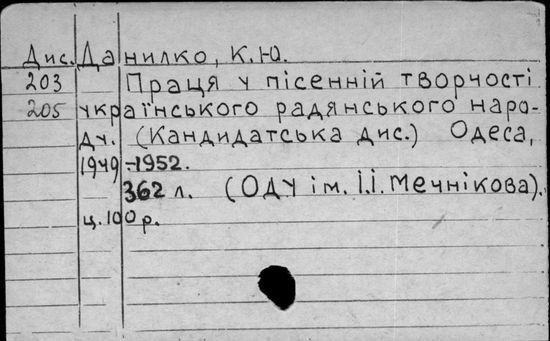 Дис. Данилко, К.Ю.
203 Праця у пісенній творчості
205 українського радянського наро-
ду. (Кандидатська дис.) Одеса,
1949-1952.
362 л. (ОДУ ім. І.І. Мечнікова).
ц. 100 р.